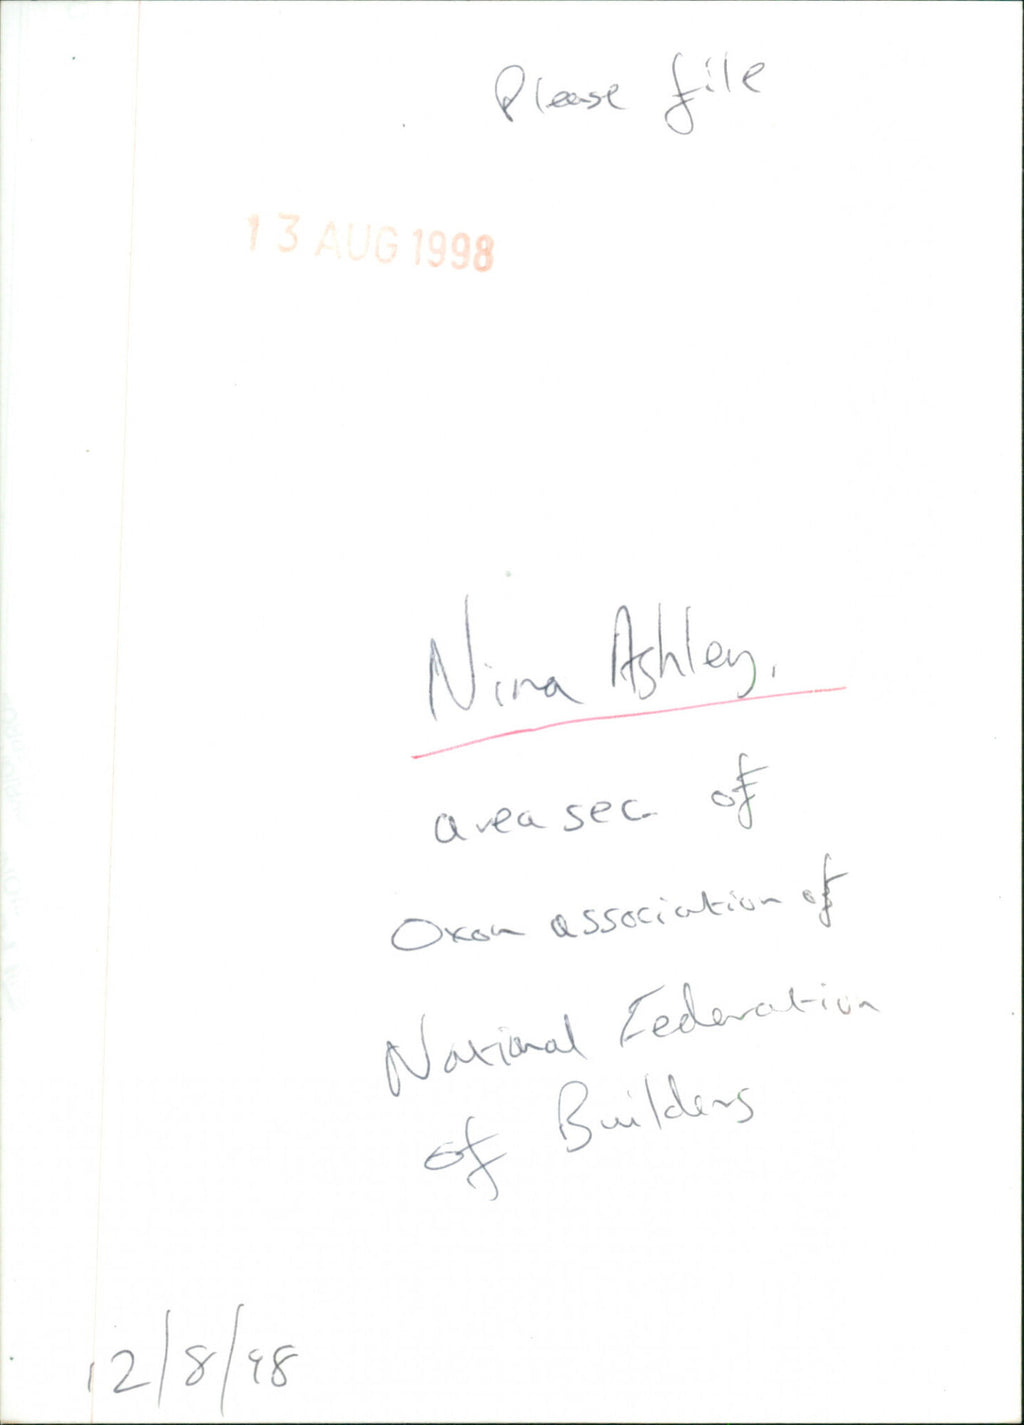 Please file
13 AUG 1998
Nina Ashley.
area sec of
Oxon association of
National Federation
of Builders
12/8/98